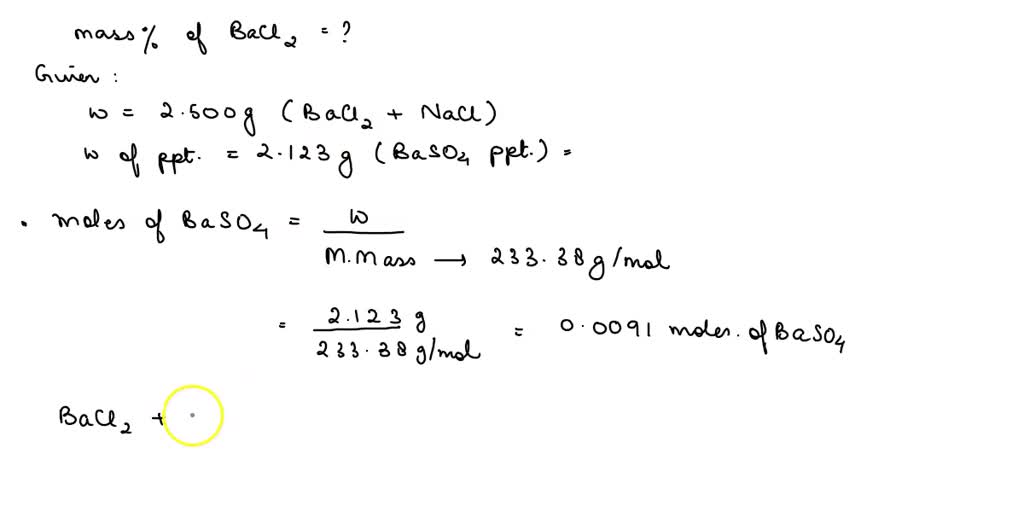 mass% of BaCl2 = ?
Given :
w = 2.500g (BaCl2 + NaCl)
w of ppt. = 2.123 g (BaSO4 ppt.) =
. moles of BaSO4 = w / M.Mass → 233.38 g/mol
= 2.123 g / 233.38 g/mol = 0.0091 moles. of BaSO4
BaCl2 +